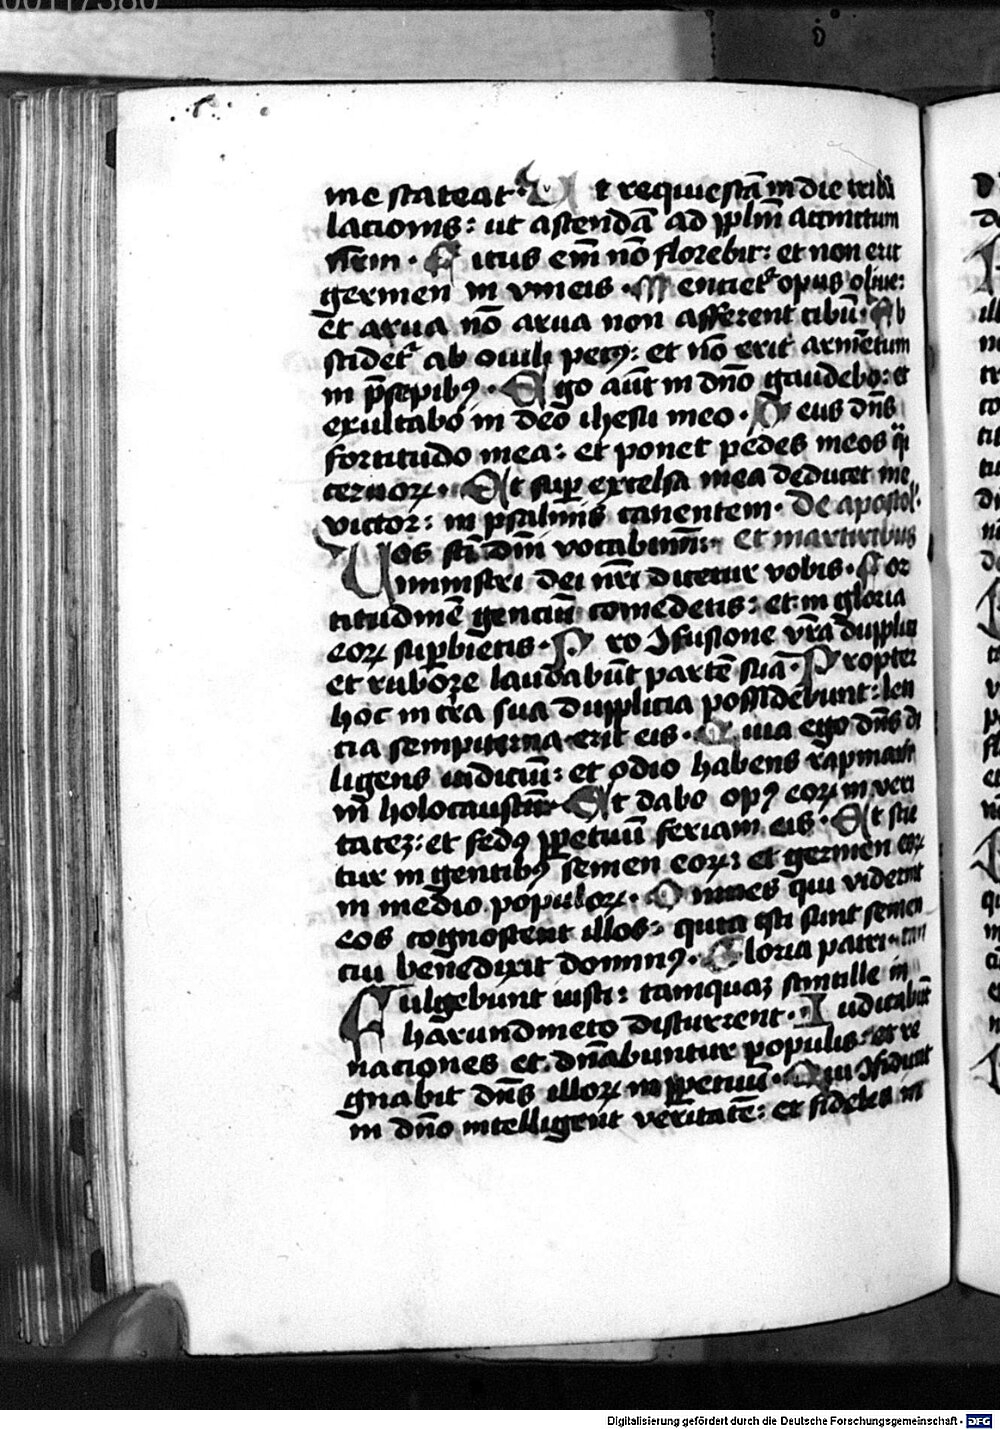 me scateat· Ut requiescā in die tribu
lacionis: ut ascendā ad pplm accinctum
nr̄m· Ficus em̄ nō florebit: et non erit
germen in vineis· Mencietᷣ opus oliue:
et arua nō arua non afferent cibū· Ab
scidetᷣ ab ouili pecꝯ: et nō erit armētum
in p̄sepibꝯ· Ego aūt in dn̄o gaudebo: et
exultabo in deo ihesu meo· Deus dn̄s
fortitudo mea: et ponet pedes meos q̄i
ceruoꝝ· Et suꝑ excelsa mea deducet me
victor: in psalmis canentem· De apostol·
Uos sc̄i dn̄i vocabimini: et martiribus
ministri dei nr̄i dicetur vobis· For
titudinē genciū comedetis: et in gloria
eoꝝ suꝑbietis· Pro ꝯfusione vr̄a dupplici
et rubore laudabūt partē suā· Propter
hoc in tr̄a sua dupplicia possidebunt: leti
cia sempiterna erit eis· Quia ego dn̄s di
ligens iudiciū: et odio habens rapinam
in holocaustū· Et dabo opꝯ eoꝝ in veri
tateꝫ: et fedꝯ ꝑpetuū feriam eis· Et scie
tur in gentibꝯ semen eoꝝ: et germen eoꝝ
in medio populoꝝ· Omnes qui viderint
eos cognoscent illos: quia isti sunt semen
cui benedixit dominꝯ· Gloria patri
Fulgebunt iusti: tamquaꝫ scintille in
harundineto discurrent· Iudicabūt
naciones et dn̄abuntur populis: et re
gnabit dn̄s illoꝝ in ꝑpetuū· Qui ꝯfidunt
in dn̄o intelligent veritatē: et fideles in
Digitalisierung gefördert durch die Deutsche Forschungsgemeinschaft - DFG